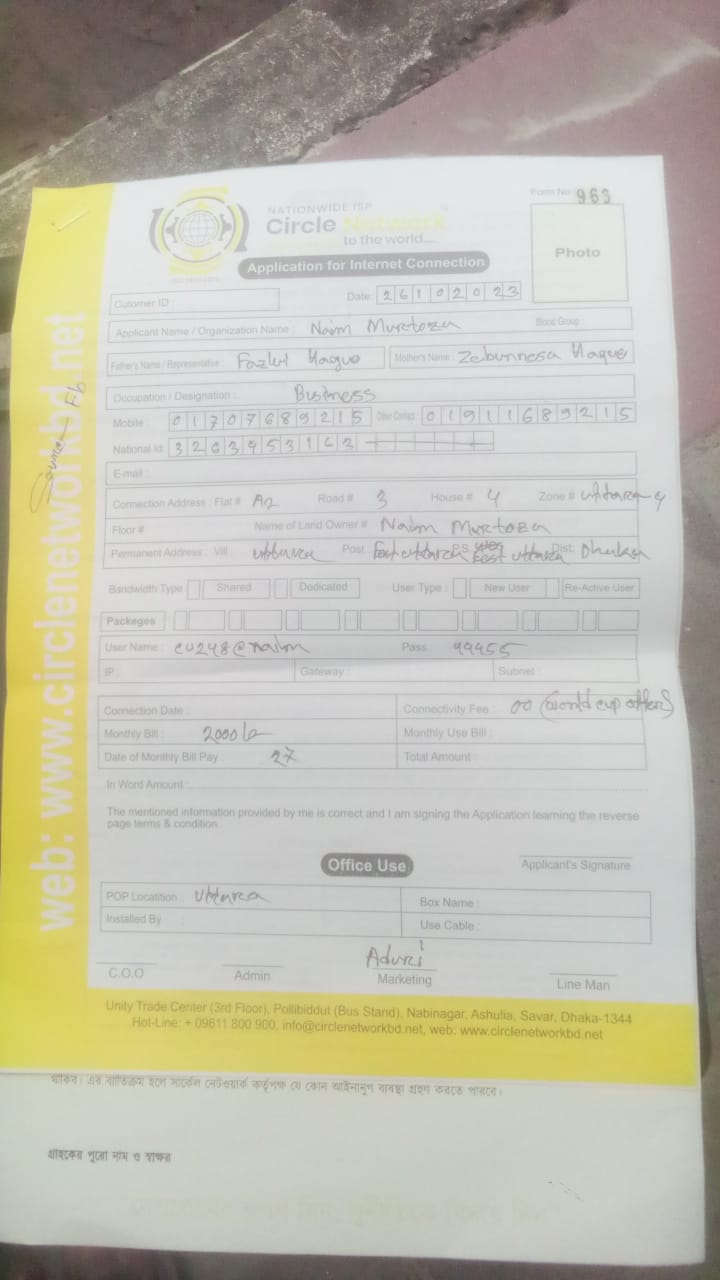 Form No: 963
NATIONWIDE ISP
Circle Network
to the world....
Photo
Application for Internet Connection
Cutomer ID :
Date: 26102023
Applicant Name / Organization Name : Naim Murtoza Blood Group :
Father's Name / Representative : Fazlul Haque Mother's Name : Zebunnesa Haque
Occupation / Designation : Business
Mobile : 01707689215 Other Contact : 01911689215
National Id: 3263953163
E-mail :
Connection Address : Flat # A2 Road # 3 House # 4 Zone # uttara-4
Floor # Name of Land Owner # Naim Murtoza
Permanent Address : Vill : uttara Post : East uttara P.S East uttara Dist: Dhaka
Bandwidth Type Shared Dedicated User Type : New User Re-Active User
Packeges
User Name : cu248@naim Pass : 99955
IP : Gateway : Subnet :
Connection Date : Connectivity Fee : 00 (world cup offers)
Monthly Bill : 2000/- Monthly Use Bill :
Date of Monthly Bill Pay : 27 Total Amount :
In Word Amount :
The mentioned information provided by me is correct and I am signing the Application learning the reverse
page terms & condition.
Applicant's Signature
Office Use
POP Locatition : Uttara Box Name :
Installed By Use Cable :
Aduri
C.O.O Admin Marketing Line Man
Unity Trade Center (3rd Floor), Pollibiddut (Bus Stand), Nabinagar, Ashulia, Savar, Dhaka-1344
Hot-Line: + 09611 800 900, info@circlenetworkbd.net, web: www.circlenetworkbd.net
web: www.circlenetworkbd.net
থাকিব। এর ব্যতিক্রম হলে সার্কেল নেটওয়ার্ক কর্তৃপক্ষ যে কোন আইনানুগ ব্যবস্থা গ্রহণ করতে পারবে।
গ্রাহকের পুরো নাম ও স্বাক্ষর